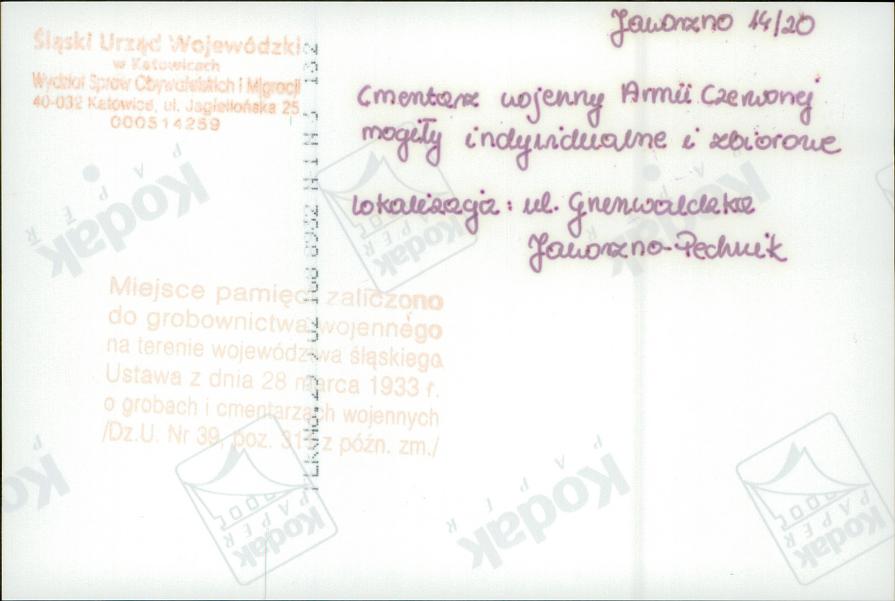 Jaworzno 14/20
Śląski Urząd Wojewódzki
w Katowicach
Wydział Spraw Obywatelskich i Migracji
40-032 Katowice, ul. Jagiellońska 25
000514259
Cmentarz wojenny Armii Czerwonej
mogiły indywidualne i zbiorowe
lokalizacja: ul. Grunwaldzka
Jaworzno-Pechnik
Miejsce pamięci zaliczono
do grobownictwa wojennego
na terenie województwa śląskiego
Ustawa z dnia 28 marca 1933 r.
o grobach i cmentarzach wojennych
/Dz.U. Nr 39, poz. 311 z późn. zm./
Kodak
PAPER
Kodak
PAPER
Kodak
PAPER
Kodak
PAPER
Kodak
PAPER